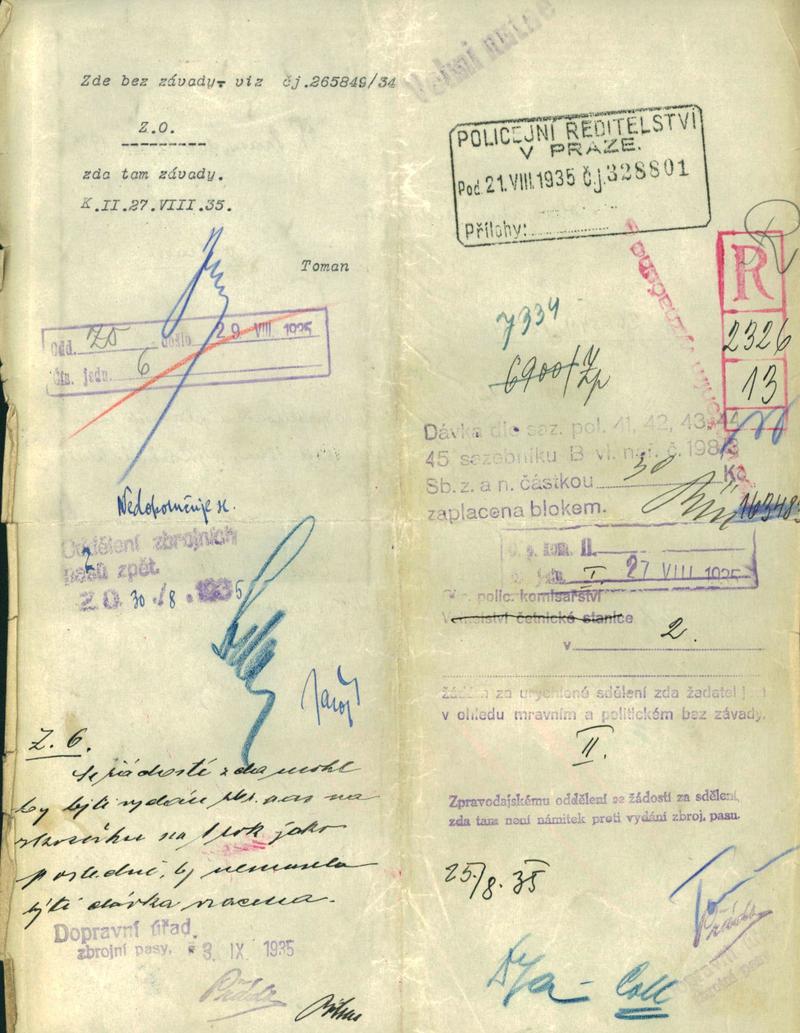 Zde bez závady- viz čj.265849/34
Z.O.
zda tam závady.
K.II.27.VIII.35.
Toman
Odd. ZO došlo 29 VIII 1935
Čín. jedn. 6
Nedoporučuje se.
Oddělení zbrojních
pasů zpět.
Z.O. 30./8. 1935
Z. 6.
se žádostí zda mohl
by býti vydán zbr. pas na
zkoušku na 1 rok jako
poslední, by nemusela
býti dávka vrácena.
Dopravní úřad.
zbrojní pasy, 3 IX 1935
Velmi nutné
POLICEJNÍ ŘEDITELSTVÍ
V PRAZE.
Pod. 21.VIII.1935 č.j.328801
Přílohy:
R
2326
13
7334
6900/V
Dávka dle saz. pol. 41, 42, 43, 44
45 sazebníku B vl. nař. č. 198/3
Sb. z. a n. částkou 30 Kč
zaplacena blokem.
II.
I. 27 VIII 1935
Obv. polic. komisařství
Velitelství četnické stanice
v 2.
žádám za urychlené sdělení zda žadatel jest
v ohledu mravním a politickém bez závady.
II.
Zpravodajskému oddělení se žádostí za sdělení,
zda tam není námitek proti vydání zbroj. pasu.
25/8. 35